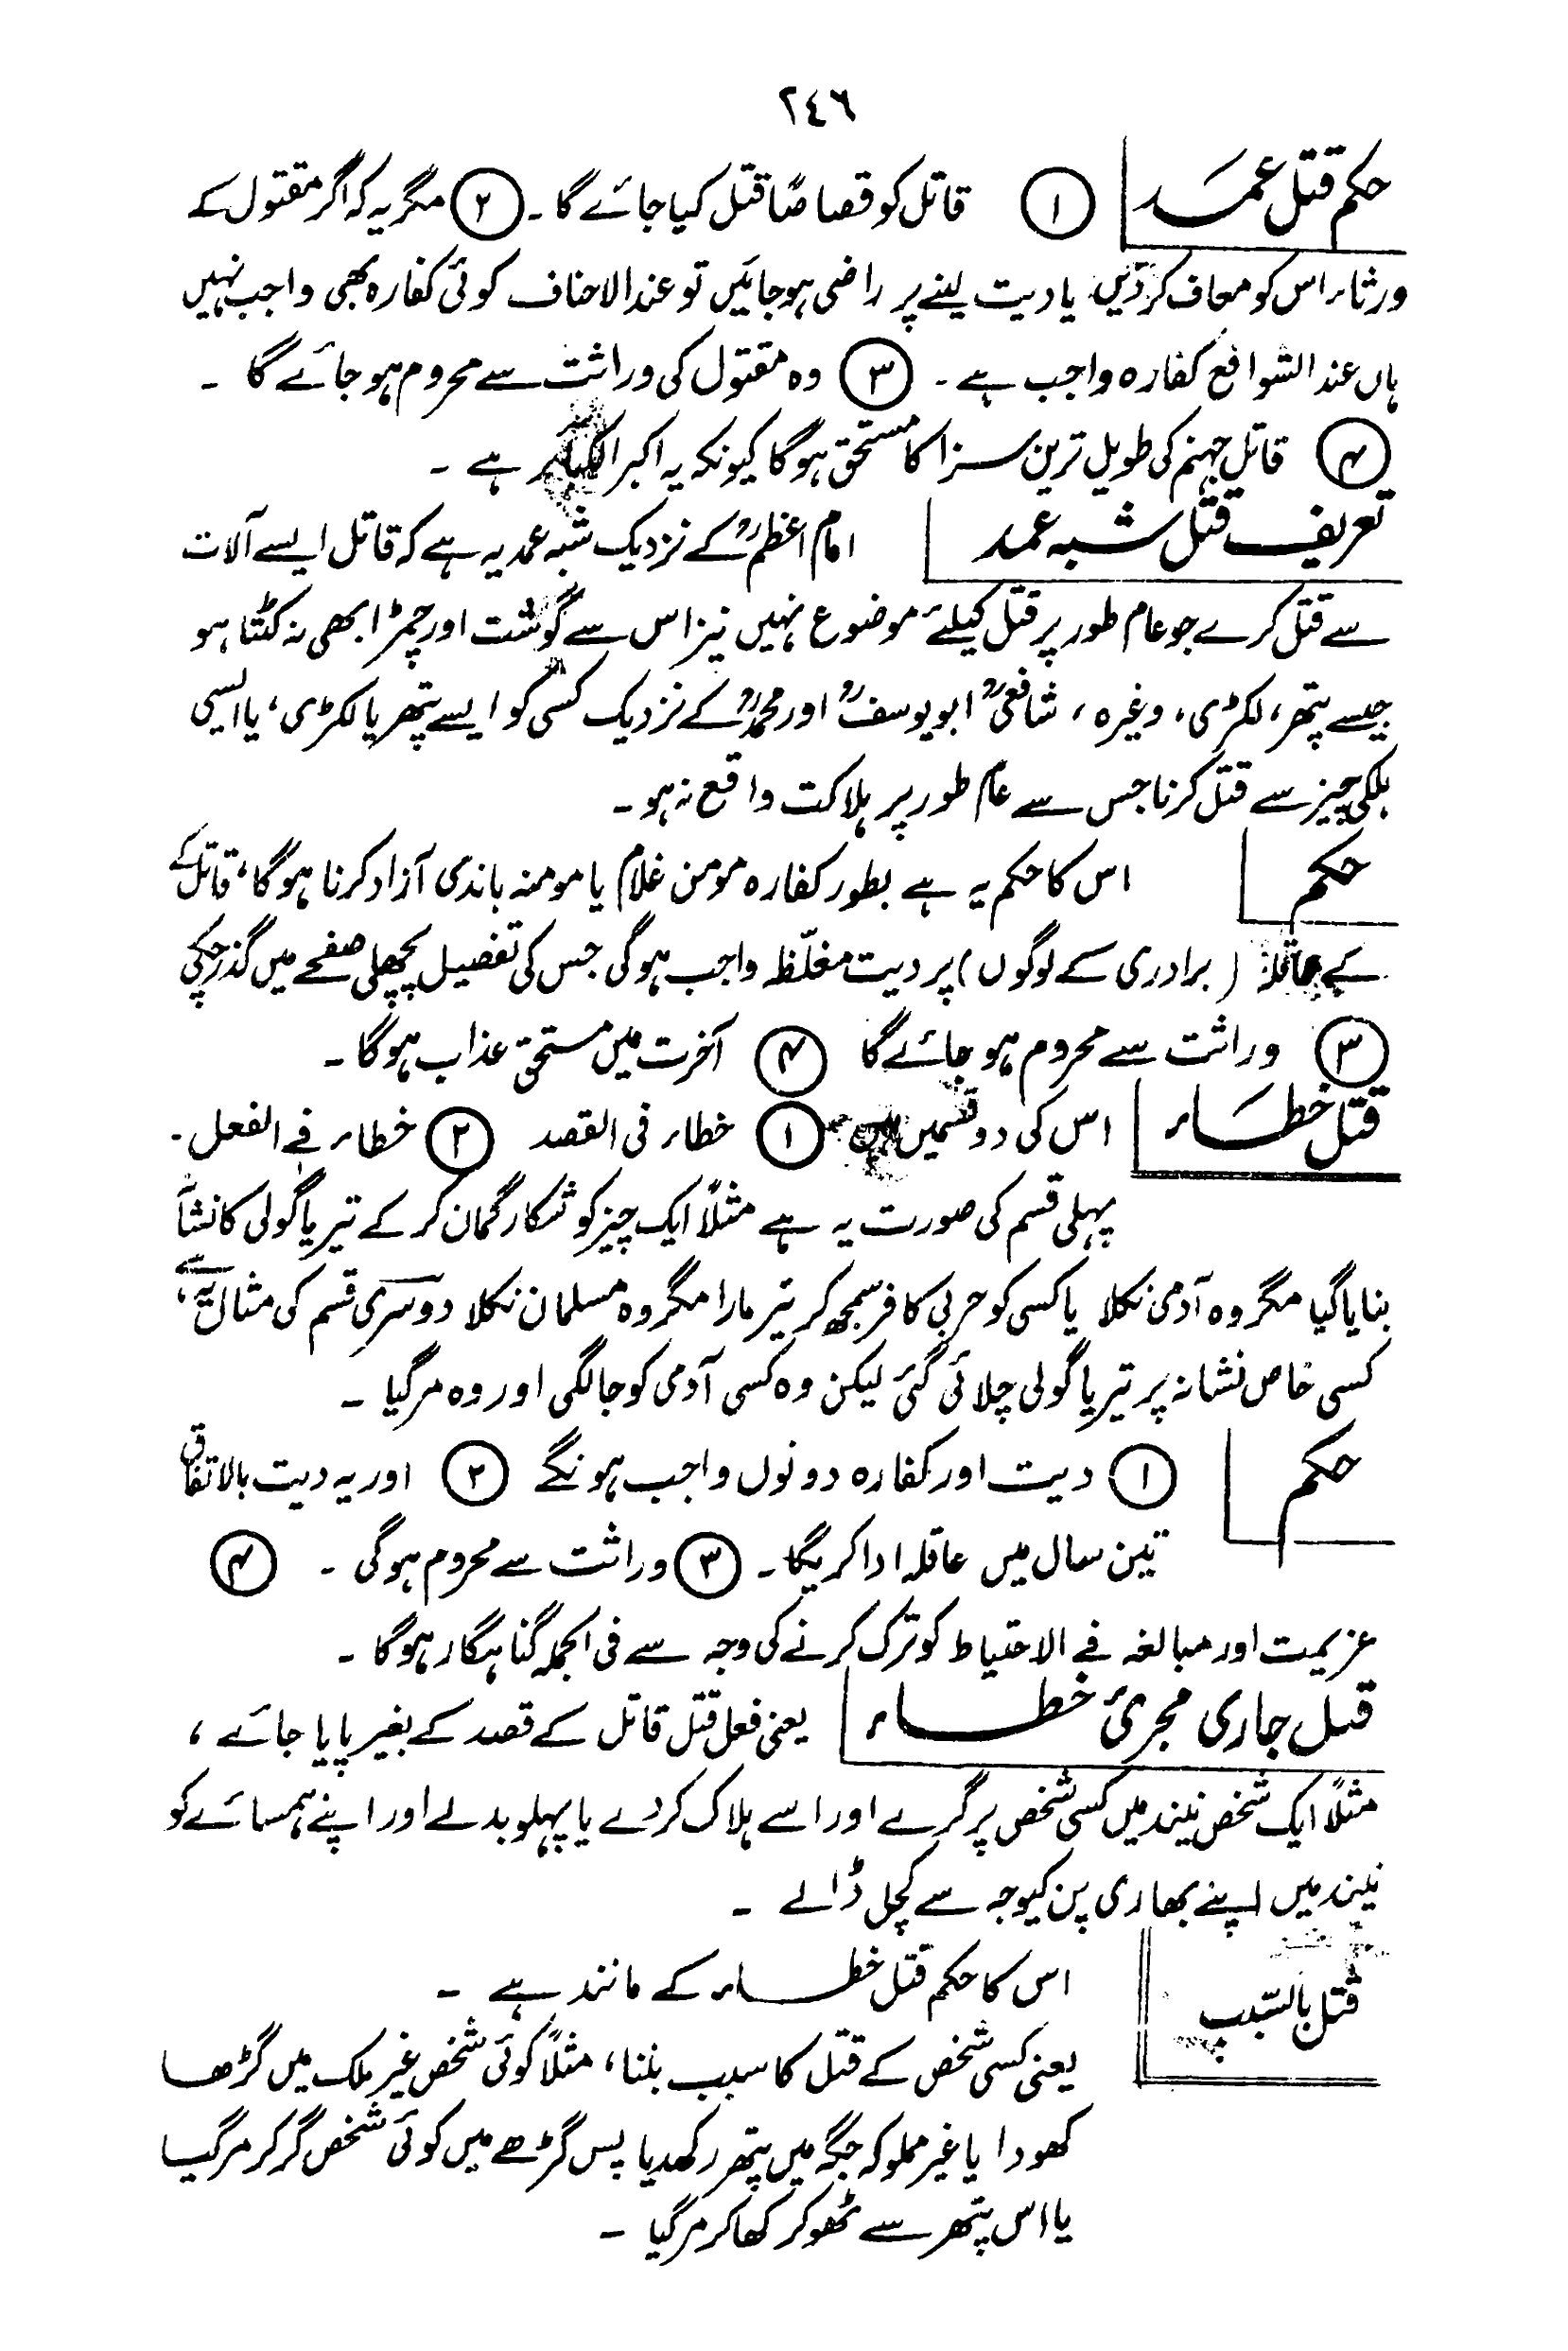 ٢٤٦
حکم قتل عمد ① قاتل کو قصاصًا قتل کیا جائے گا ۔ ② مگر یہ کہ اگر مقتول کے
ورثاء اس کو معاف کردیں یا دیت لینے پر راضی ہوجائیں تو عند الاحناف کوئی کفارہ بھی واجب نہیں
ہاں عند الشوافع کفارہ واجب ہے ۔ ③ وہ مقتول کی وراثت سے محروم ہو جائے گا ۔
④ قاتل جہنم کی طویل ترین سزا کا مستحق ہوگا کیونکہ یہ اکبر الکبائر ہے ۔
تعریف قتل شبہ عمد امام اعظمؒ کے نزدیک شبہ عمد یہ ہے کہ قاتل ایسے آلات
سے قتل کرے جو عام طور پر قتل کیلئے موضوع نہیں نیز اس سے گوشت اور چمڑا بھی نہ کٹتا ہو
جیسے پتھر، لکڑی، وغیرہ، شافعیؒ ابو یوسفؒ اور محمدؒ کے نزدیک کسی کو ایسے پتھر یا لکڑی، یا ایسی
ہلکی چیز سے قتل کرنا جس سے عام طور پر ہلاکت واقع نہ ہو ۔
حکم اس کا حکم یہ ہے بطور کفارہ مومن غلام یا مومنہ باندی آزاد کرنا ہوگا، قاتل کے
کے عاقلہ (برادری کے لوگوں) پر دیت مغلّظہ واجب ہوگی جس کی تفصیل پچھلی صفحے میں گذرچکی
③ وراثت سے محروم ہو جائے گا ④ آخرت میں مستحق عذاب ہوگا ۔
قتل خطاء اس کی دو قسمیں ہیں ① خطاء فی القصد ② خطاء فے الفعل ۔
پہلی قسم کی صورت یہ ہے مثلاً ایک چیز کو شکار گمان کر کے تیر یا گولی کا نشانہ
بنایا گیا مگر وہ آدمی نکلا یا کسی کو حربی کافر سمجھ کر تیر مارا مگر وہ مسلمان نکلا دوسری قسم کی مثال یہ ہے،
کسی خاص نشانہ پر تیر یا گولی چلائی گئی لیکن وہ کسی آدمی کو جا لگی اور وہ مرگیا ۔
حکم ① دیت اور کفارہ دونوں واجب ہونگے ② اور یہ دیت بالاتفاق
تین سال میں عاقلہ ادا کریگا ۔ ③ وراثت سے محروم ہوگی ۔ ④
عزیمت اور مبالغہ فے الاحتیاط کو ترک کرنے کی وجہ سے فی الجملہ گناہگار ہوگا ۔
قتل جاری مجریٰ خطاء یعنی فعل قتل قاتل کے قصد کے بغیر پایا جائے،
مثلاً ایک شخص نیند میں کسی شخص پر گرے اور اسے ہلاک کردے یا پہلو بدلے اور اپنے ہمسائے کو
نیند میں اپنے بھاری پن کیوجہ سے کچل ڈالے ۔
اس کا حکم قتل خطاء کے مانند ہے ۔
قتل بالسّبب
یعنی کسی شخص کے قتل کا سبب بننا، مثلاً کوئی شخص غیر ملک میں گڑھا
کھودا یا غیر مملوکہ جگہ میں پتھر رکھدیا پس گڑھے میں کوئی شخص گر کر مرگیا
یا اس پتھر سے ٹھوکر کھا کر مرگیا ۔